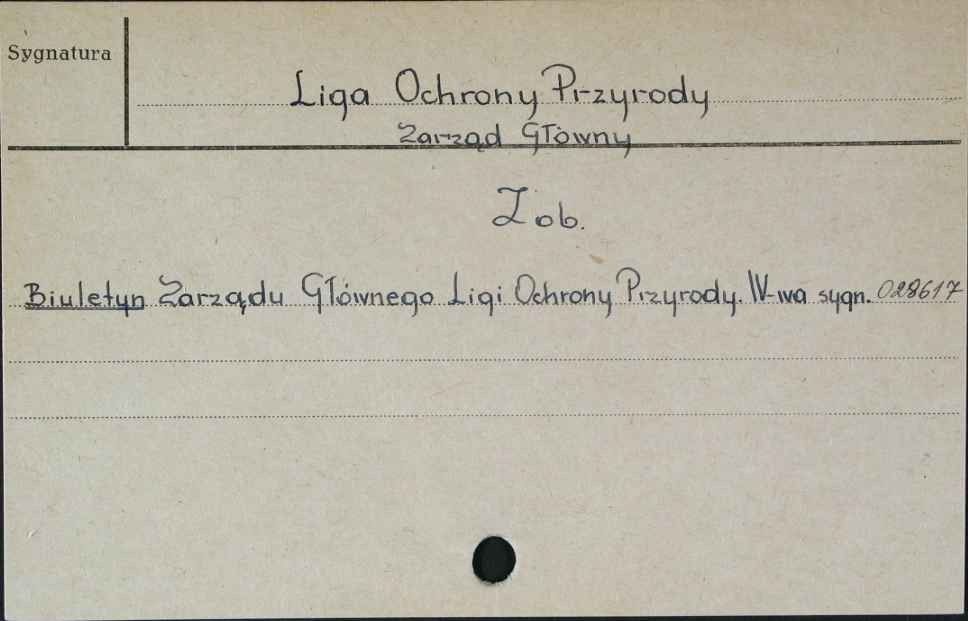 Sygnatura
Liga Ochrony Przyrody
Zarząd Główny
Zob.
Biuletyn Zarządu Głównego Ligi Ochrony Przyrody. W-wa sygn. 028617